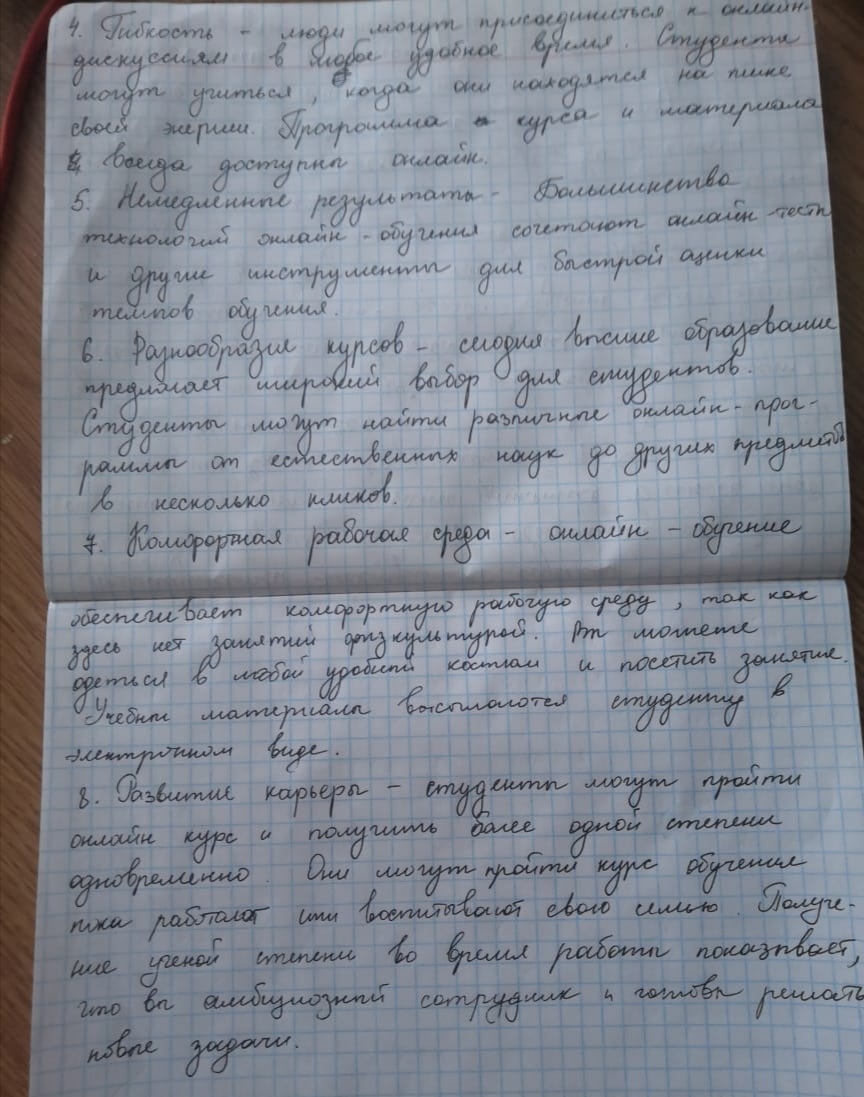 4. Гибкость - люди могут присоединиться к онлайн-
дискуссиям в любое удобное время. Студенты
могут учиться, когда они находятся на пике
своей энергии. Программа курса и материала
всегда доступны онлайн.
5. Немедленные результаты - Большинство
технологий онлайн-обучения сочетают онлайн-тесты
и другие инструменты для быстрой оценки
темпов обучения.
6. Разнообразие курсов - сегодня высшее образование
предлагает широкий выбор для студентов.
Студенты могут найти различные онлайн-прог-
раммы от естественных наук до других предметов
в несколько кликов.
7. Комфортная рабочая среда - онлайн-обучение
обеспечивает комфортную рабочую среду, так как
здесь нет занятий физкультурой. Вы можете
одеться в любой удобный костюм и посетить занятие.
Учебные материалы высылаются студенту в
электронном виде.
8. Развитие карьеры - студенты могут пройти
онлайн курс и получить более одной степени
одновременно. Они могут пройти курс обучения
пока работают или воспитывают свою семью. Получе-
ние ученой степени во время работы показывает,
что вы амбициозный сотрудник и готовы решать
новые задачи.